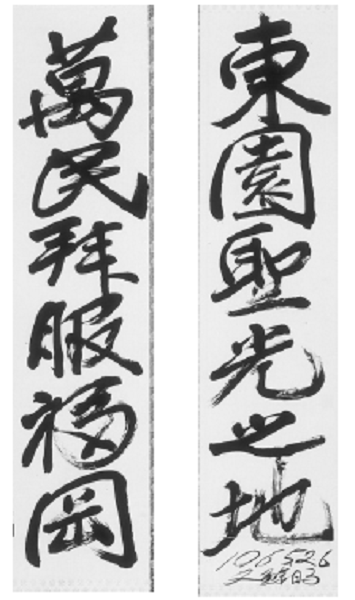 東園聖光之地
106526
萬民拜服福岡